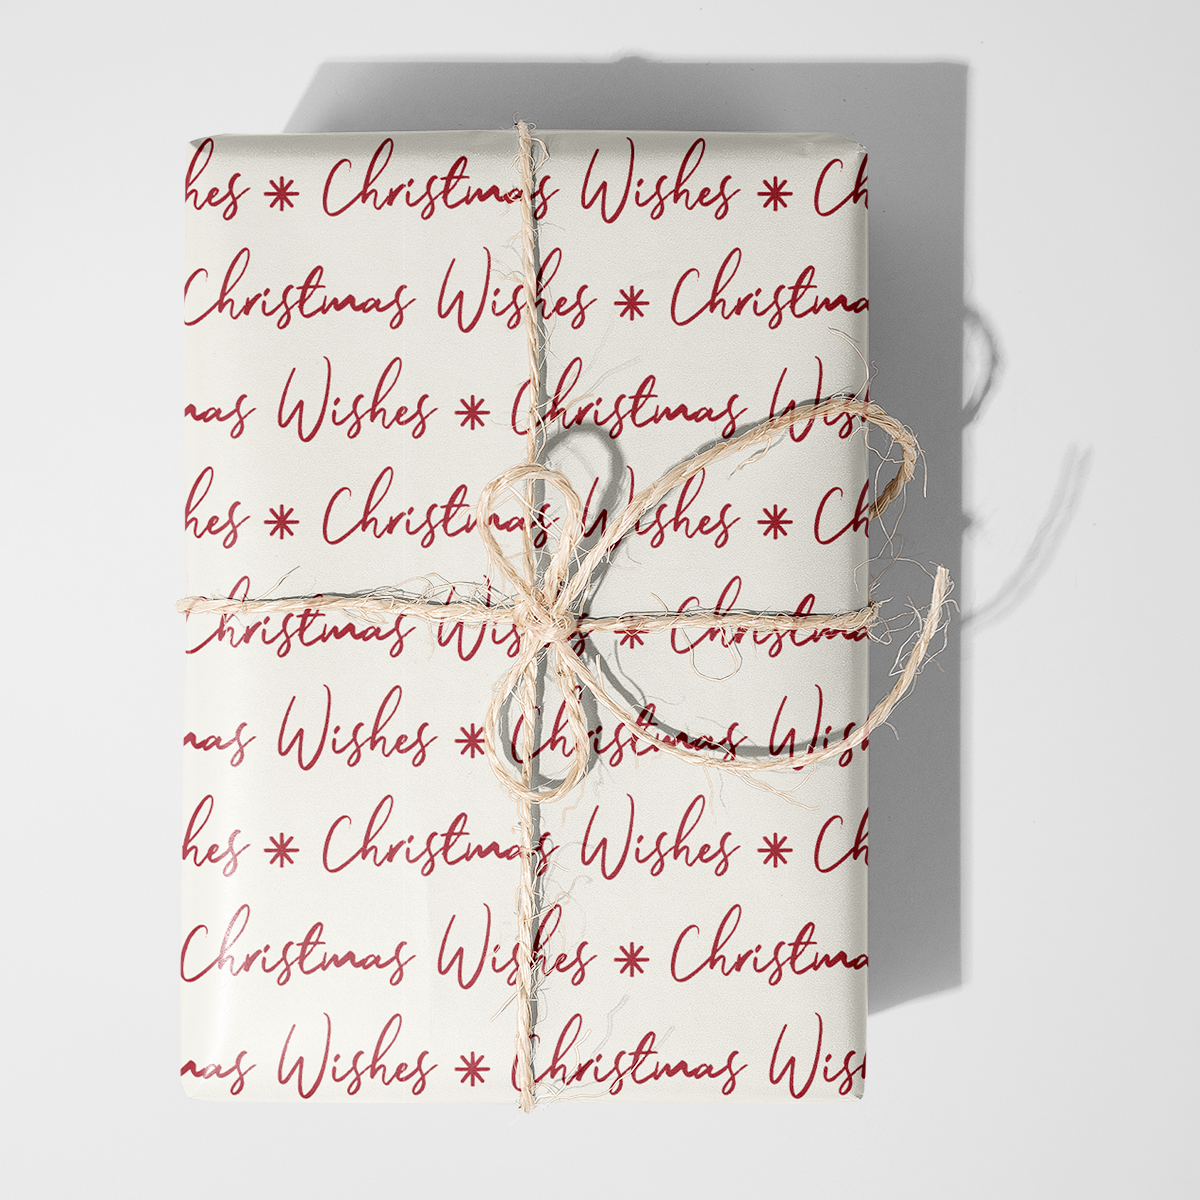 hes * Christmas Wishes * Ch
Christmas Wishes * Christma
mas Wishes * Christmas Wish
hes * Christmas Wishes * Ch
Christmas Wishes * Christma
mas Wishes * Christmas Wish
hes * Christmas Wishes * Ch
Christmas Wishes * Christma
mas Wishes * Christmas Wish